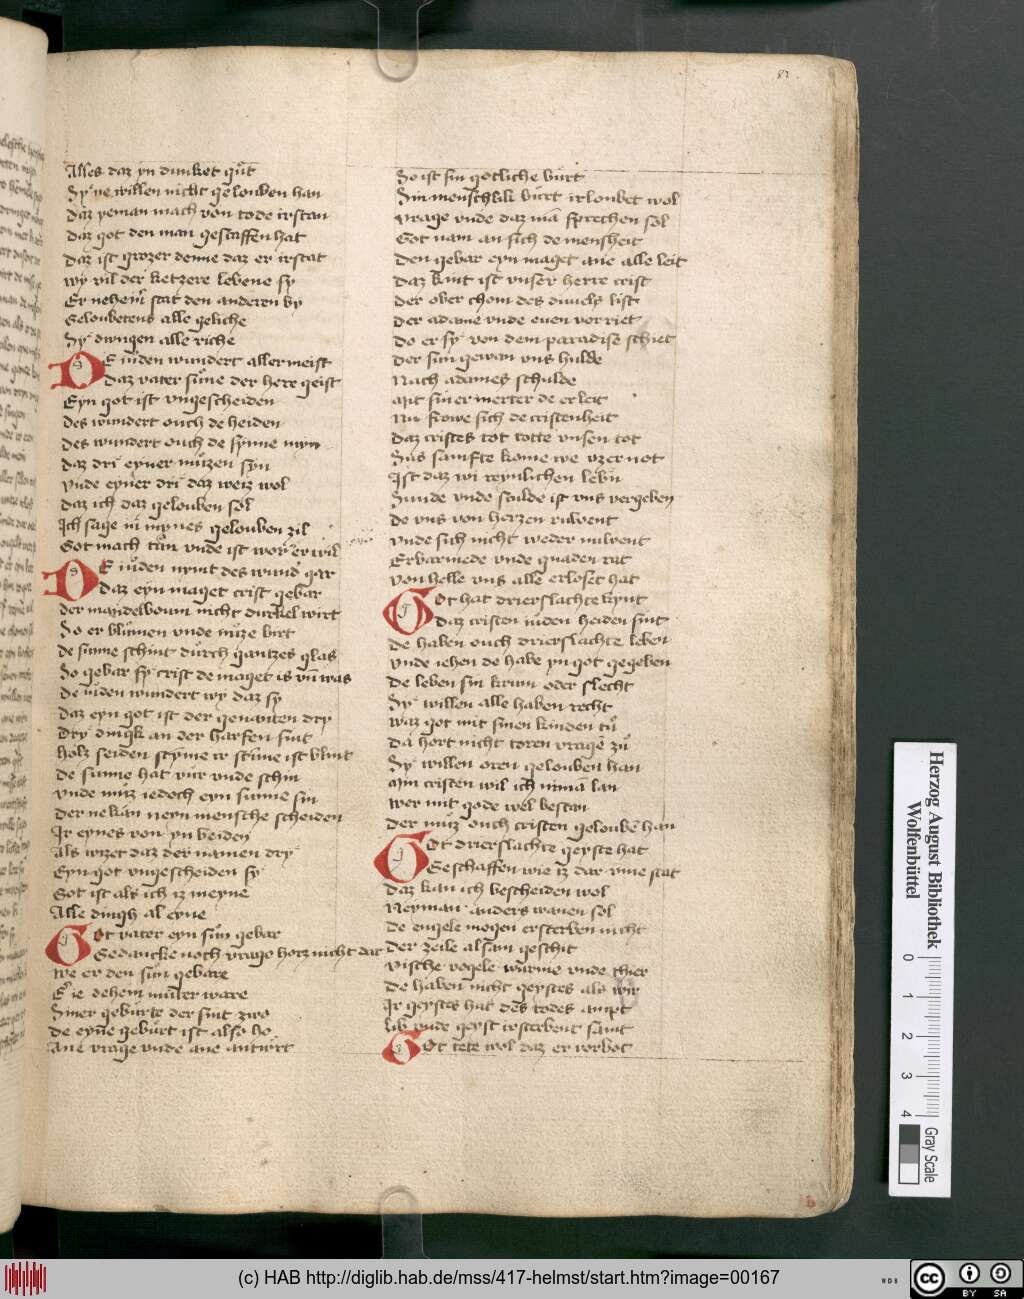 82
Alles daz yn dunket gůt
Sy ne willen nicht gelouben han
daz yeman mach von tode irstan
daz got den man gescaffen hat
daz ist grozer denne daz er irstat
wy vil der ketzere lebene sy
Er nehein stat den anderen by
Geloubetens alle geliche
Sy dwngen alle riche
DE iuden wundert allermeist
daz vater sůne der herre geist
Eyn got ist vngescheiden
des wundert ouch de heiden
des wundert ouch de synne myn
daz dri eyner muzen syn
vnde eyner dri daz weiz wol
daz ich daz gelouben sol
Ich sage in mynes gelouben zil
Got mach tůn vnde ist wor er wil
DE iuden nymt des wund gar
daz eyn maget crist gebar
der mandelboum nicht durkel wirt
So er blůmen vnde nůze birt
de sunne schint durch gantzes glas
So gebar sy crist de maget is vn was
de iuden wundert wy daz sy
daz eyn got ist der genanten dry
Dry dingk an der harfen sint
holz seiden styme ir stime ist blint
de sunne hat vur vnde schin
vnde muz iedoch eyn sunne sin
der nekan neyn mensche scheiden
Ir eynes von yn beiden
als wizet daz der namen dry
Eyn got vngescheiden sy
Got ist als ich iz meyne
Alle dingh al eyne
GOt vater eyn sůn gebar
Gedancke noch vrage horz nicht dar
we er den sůn gebare
E ie dehein můter ware
Siner geburte der sint zwo
de eyne geburt ist also ho
Ane vrage vnde ane antwrt
So ist sin gotliche burt
Sin menschlik burt irloubet wol
vrage vnde daz mā sprechen sol
Got nam an sich de mensheit
den gebar eyn maget ane alle leit
daz kint ist vnser herre crist
der ober chom des duuels list
der adame vnde euen verriet
do er sy von dem paradise schiet
der sun gewan vns hulde
Nach adames schulde
Mit siner merter de er leit
Nu frowe sich de cristenheit
daz cristes tot totte vnsen tot
Sus samfte kome we vzer not
Ist daz wi reynlichen lebn
Sunde vnde sculde ist vns vergeben
de vns von herzen ruwent
vnde sich nicht weder nuwent
Erbarmede vnde gnaden rat
von helle vns alle erloset hat
GOt hat drierslachte kynt
daz cristen iuden heiden sint
de haben ouch drierslachte leben
vnde iehen de habe yn got gegeben
de leben sin krum oder slecht
Sy willen alle haben recht
waz got mit sinen kinden tů
da hort nicht toren vrage zů
Sy willen oren gelouben han
Mīn cristen wil ich nimā lan
wer mit gode wel bestan
der můz ouch cristen geloubē han
GOt drierslachte geyste hat
Geschaffen wie iz dar vme stat
daz kan ich bescheiden wol
Neyman anders wanen sol
de engele mogen ersterben nicht
der zeile alsam geschit
vische vogele wurme vnde thier
de haben nicht geystes als wir
Ir geystes hat des todes ampt
lib vnde geyst irsterbent samt
GOt tete wol daz er verbot
b
Herzog August Bibliothek
Wolfenbüttel
0 1 2 3 4
Gray Scale
(c) HAB http://diglib.hab.de/mss/417-helmst/start.htm?image=00167
WDB
cc
BY SA